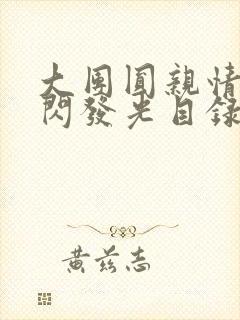 大團圓親情
閃發光自錄
黃茲志